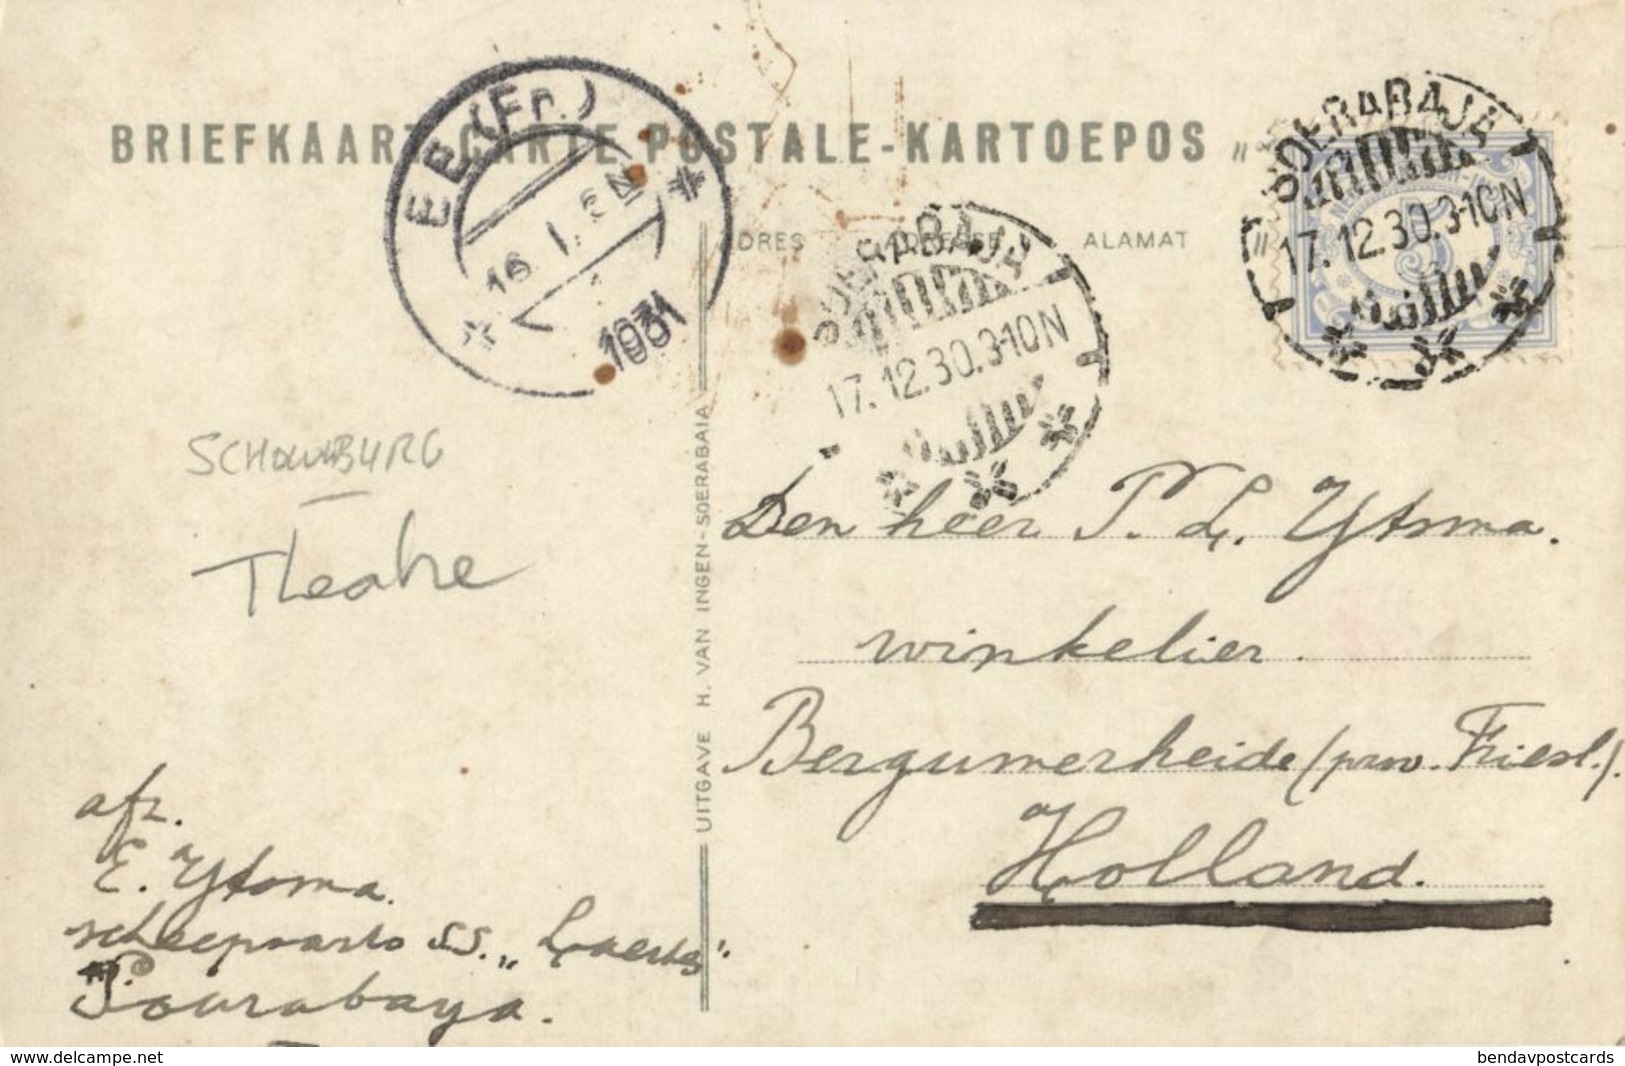 BRIEFKAART-CARTE POSTALE-KARTOEPOS
EE (Fr.)
16.1.
1931
SOERABAJA
17.12.30.3-10N
SOERABAJA
17.12.30.3-10N
5
ADRES ADRESSE ALAMAT
SCHOUWBURG
Theatre
UITGAVE H. VAN INGEN-SOERABAIA
Den heer P. L. Ytsma.
winkelier.
Bergumerheide (prov. Friesl.).
Holland.
afz.
E. Ytsma.
scheepsarts ss. „Laertes"
Sourabaya.
www.delcampe.net
bendavpostcards